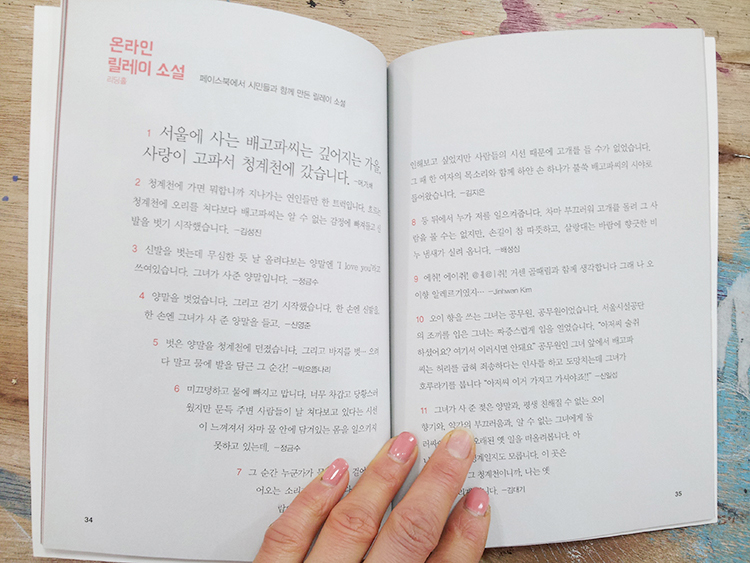 온라인
릴레이 소설
페이스북에서 시민들과 함께 만든 릴레이 소설
1 서울에 사는 배고파씨는 깊어지는 가을,
사랑이 고파서 청계천에 갔습니다. –여기봐
2 청계천에 가면 뭐합니까 지나가는 연인들만 한 트럭입니다. 흐르는
청계천에 오리를 쳐다보다 배고파씨는 알 수 없는 감정에 빠져들고 신
발을 벗기 시작했습니다. –김성진
3 신발을 벗는데 무심한 듯 날 올려다보는 양말엔 'I love you'라고
쓰여있습니다. 그녀가 사 준 양말입니다. –정금수
4 양말을 벗었습니다. 그리고 걷기 시작했습니다. 한 손엔 신발을,
한 손엔 그녀가 사 준 양말을 들고, –신명준
5 벗은 양말을 청계천에 던졌습니다. 그리고 바지를 벗– 으려
다 말고 물에 발을 담근 그 순간! –빅으뜸나리
6 미끄덩하고 물에 빠지고 맙니다. 너무 차갑고 당황스러
웠지만 문득 주변 사람들이 날 쳐다보고 있다는 시선
이 느껴져서 차마 물 안에 담겨있는 몸을 일으키지
못하고 있는데. –정금수
7 그 순간 누군가가
어오는 소리
34
인해보고 싶었지만 사람들의 시선 때문에 고개를 들 수가 없었습니다.
그 때 한 여자의 목소리와 함께 하얀 손 하나가 불쑥 배고파씨의 시야로
들어왔습니다. –김지은
8 등 뒤에서 누가 저를 일으켜줍니다. 차마 부끄러워 고개를 돌려 그 사
람을 볼 수는 없지만, 손길이 참 따뜻하고, 살랑대는 바람에 향긋한 비
누 냄새가 실려 옵니다. –배성심
9 에취! 에이취! @#@! 취! 거센 콜때림과 함께 생각합니다 그래 나 오
이향 알레르기였지… –Jinhwan Kim
10 오이 향을 쓰는 그녀는 공무원, 공무원이었습니다. 서울시설공단
의 조끼를 입은 그녀는 짜증스럽게 입을 열었습니다. “아저씨 술취
하셨어요? 여기서 이러시면 안돼요” 공무원인 그녀 앞에서 배고파
씨는 허리를 굽혀 죄송하다는 인사를 하고 도망치는데 그녀가
호루라기를 붑니다 “아저씨 이거 가지고 가셔야죠!!” –신일섭
11 그녀가 사 준 젖은 양말과, 평생 친해질 수 없는 오이
향기와, 약간의 부끄러움과, 알 수 없는 그녀에게 둘
러싸 오래된 옛 일을 떠올려봅니다. 아
계일지도 모릅니다. 이 곳은
그 청계천이니까, 나는 옛
니다. –김대기
35